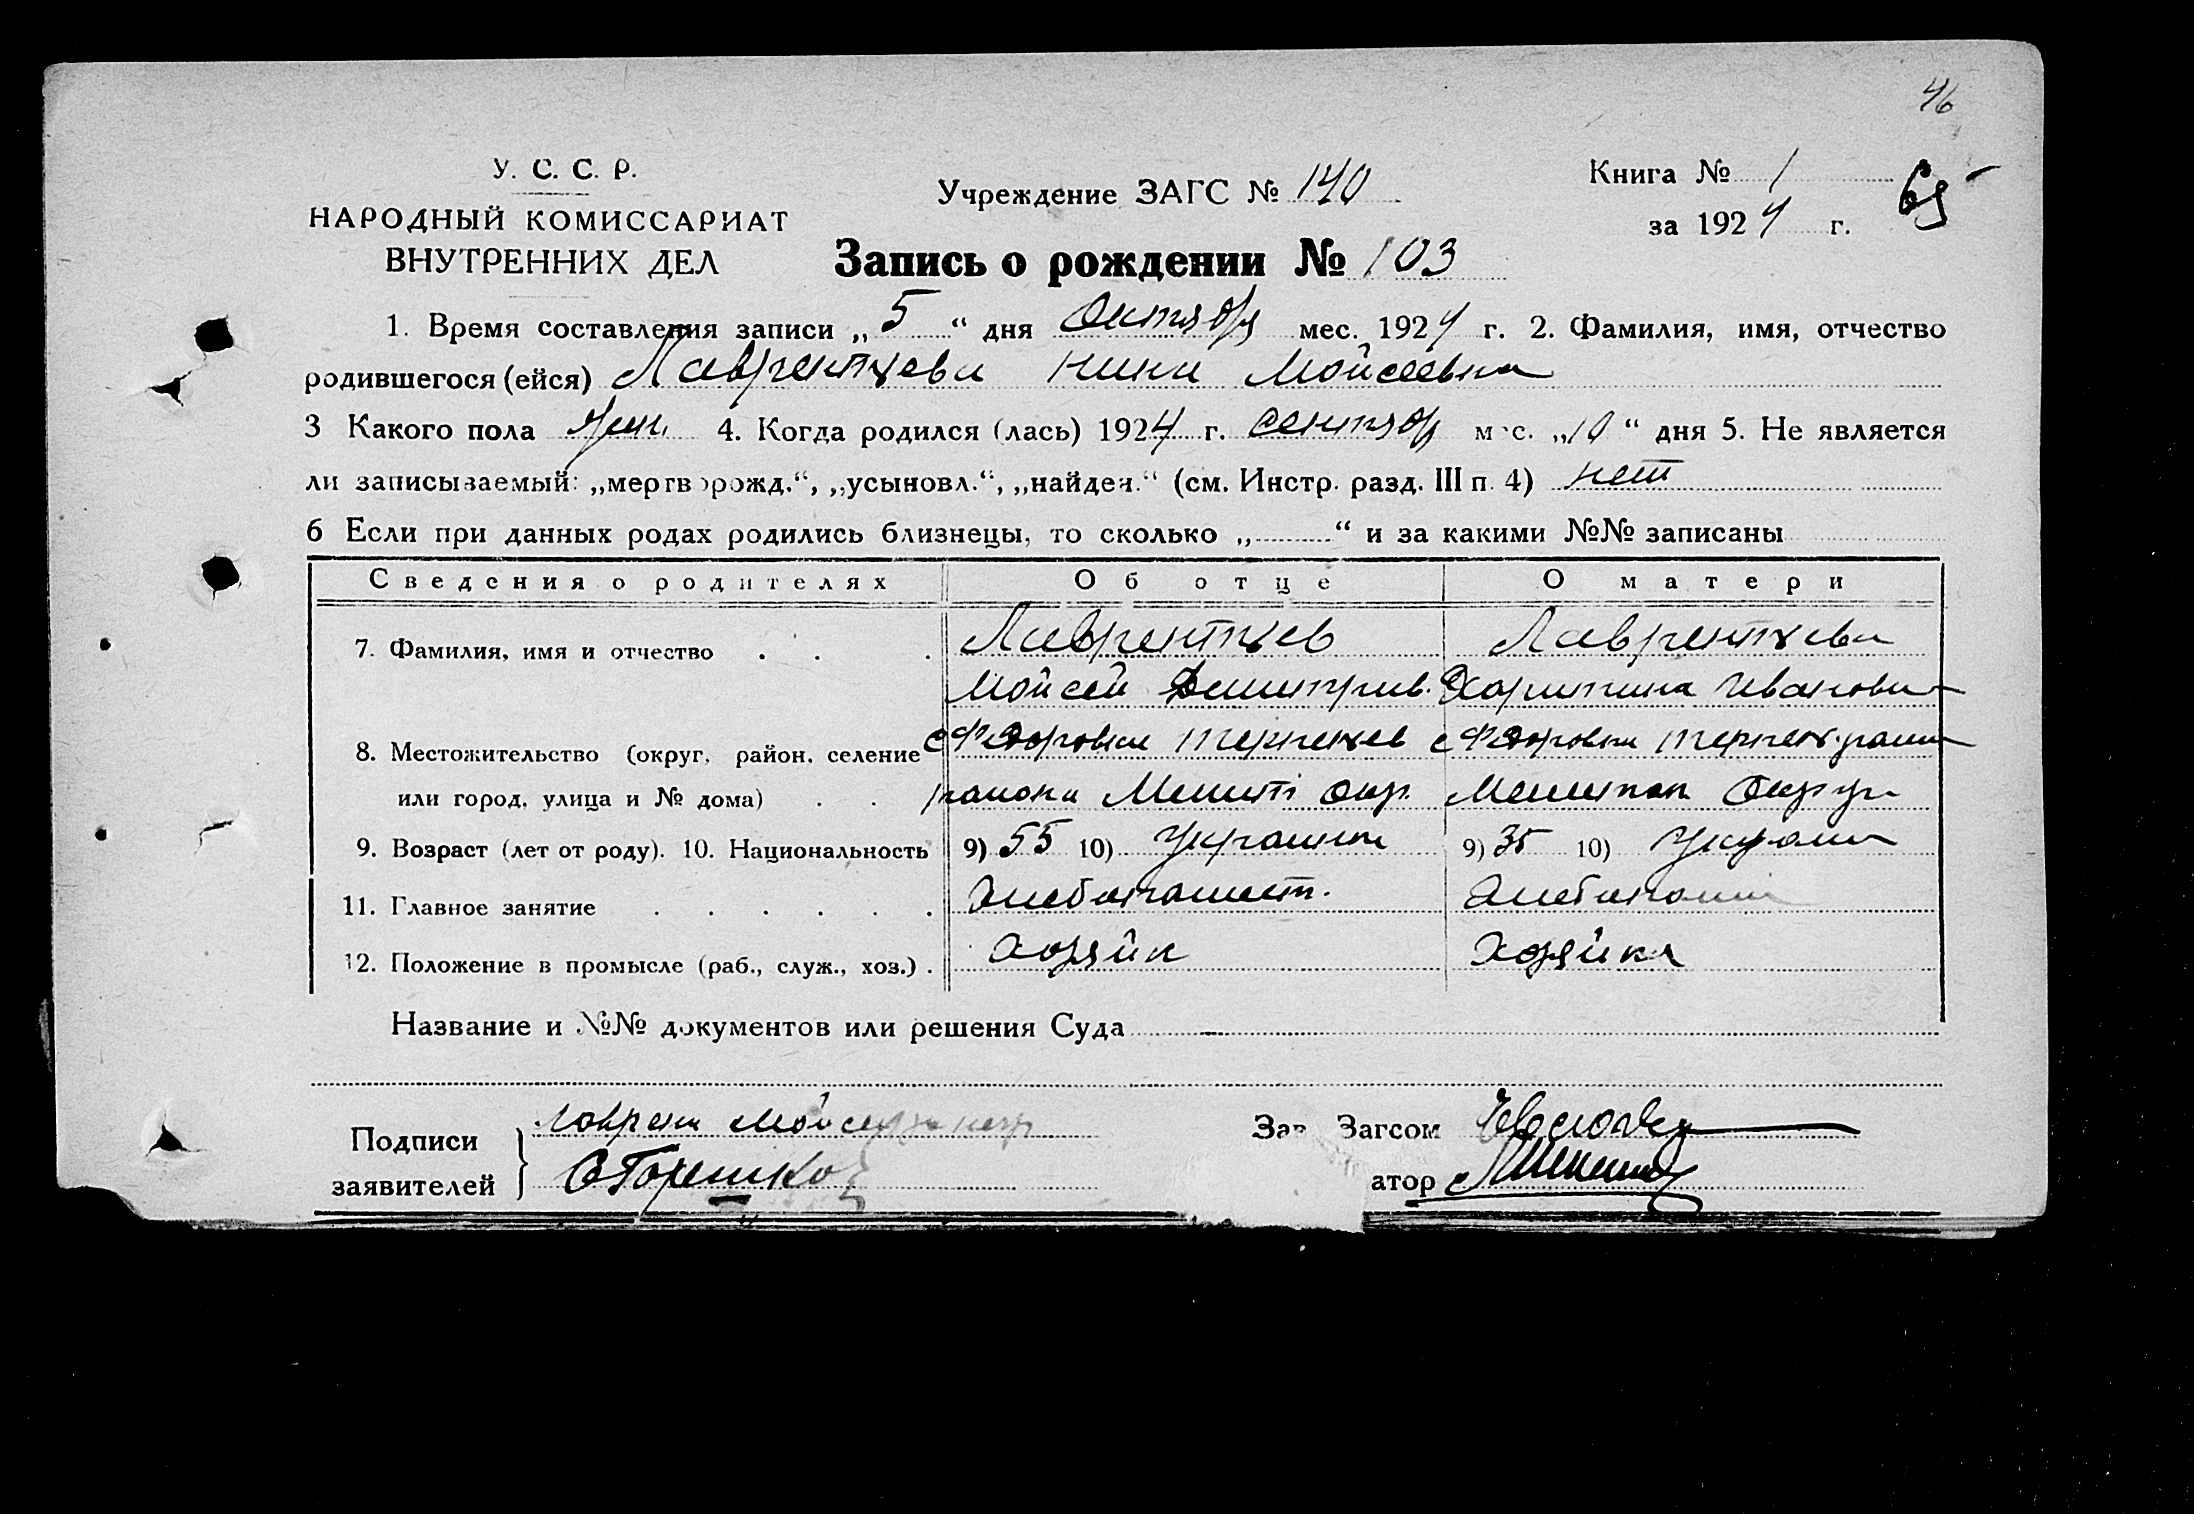 46
У. С. С. Р.
НАРОДНЫЙ КОМИССАРИАТ
ВНУТРЕННИХ ДЕЛ
Учреждение ЗАГС № 140
Книга № 1
за 1924 г.
65
Запись о рождении № 103
1. Время составления записи „ 5 “ дня Октября мес. 1924 г. 2. Фамилия, имя, отчество
родившегося (ейся) Лаврентьева Нина Мойсеевна
3 Какого пола жен. 4. Когда родился (лась) 1924 г. сентября мес. „10“ дня 5. Не является
ли записываемый: „мертворожд.“, „усыновл.“, „найден.“ (см. Инстр. разд. III п. 4) нет
6 Если при данных родах родились близнецы, то сколько „ “ и за какими №№ записаны
Сведения о родителях Об отце О матери
7. Фамилия, имя и отчество Лаврентьев Лаврентьева
Мойсей Дмитрив. Харитина Иванова
8. Местожительство (округ, район, селение с Федоровка с Федоровка
или город, улица и № дома) района Мелит окр.
9. Возраст (лет от роду). 10. Национальность 9) 55 10) 9) 35 10)
11. Главное занятие Хлебопашест.
12. Положение в промысле (раб., служ., хоз.) Хозяин Хозяйка
Название и №№ документов или решения Суда —
Подписи
заявителей
Зав Загсом
атор